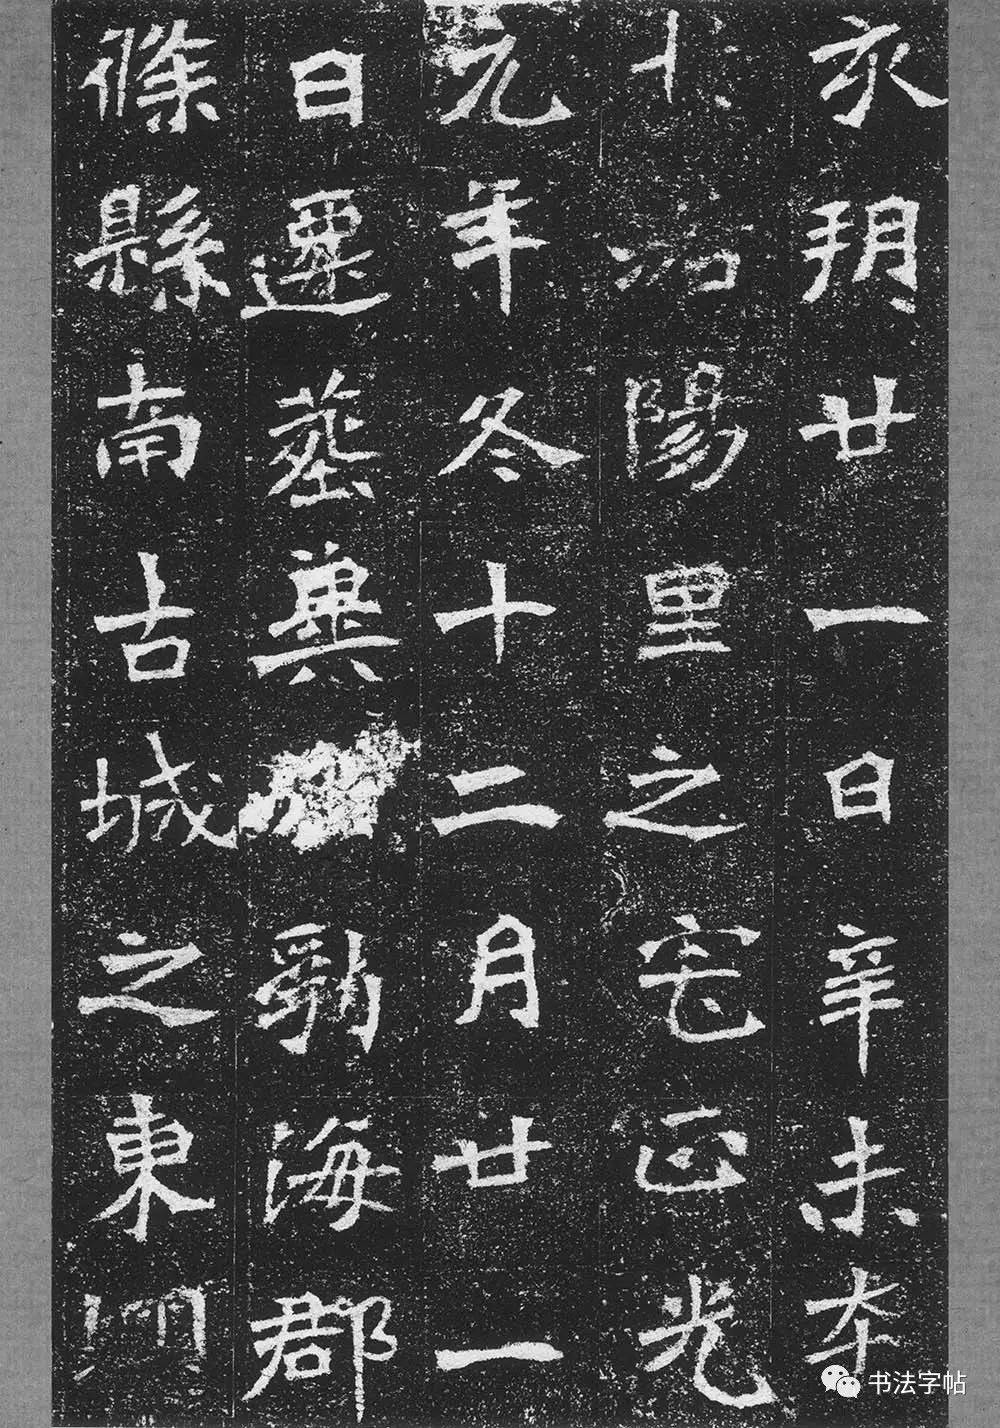 亥朔廿一日辛未卒
洛陽里之宅正光
元年冬十二月廿一
日遷葬冀勃海郡
條縣南古城之東
书法字帖